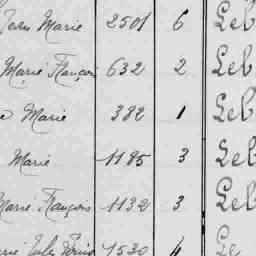 Jean Marie 2501 6 Leb
Marie François 632 2 Leb
Marie 382 1 Leb
Marie 1185 3 Leb
Marie François 1132 3 Leb
1530 Le